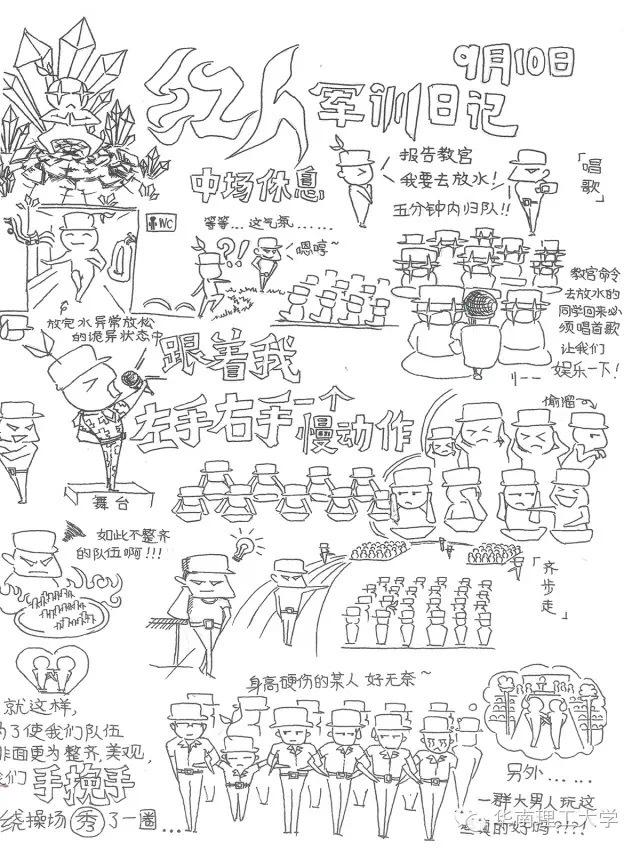 9月10日
红人军训日记
中场休息
报告教官
我要去放水！
五分钟内归队!!
「唱歌」
WC
等等...这气氛......
?!
嗯哼~
放完水异常放松
的诡异状态中
教官命令
去放水的
同学回来必
须唱首歌
让我们
娱乐一下！
跟着我
左手右手一个
慢动作
舞台
偷溜
如此不整齐
的队伍啊!!!
「齐步走」
身高硬伤的某人 好无奈~
就这样，
了使我们队伍
面更为整齐,美观,
们手挽手
绕操场秀了一圈...
另外......
一群大男人玩这
真的好吗?!?!
华南理工大学